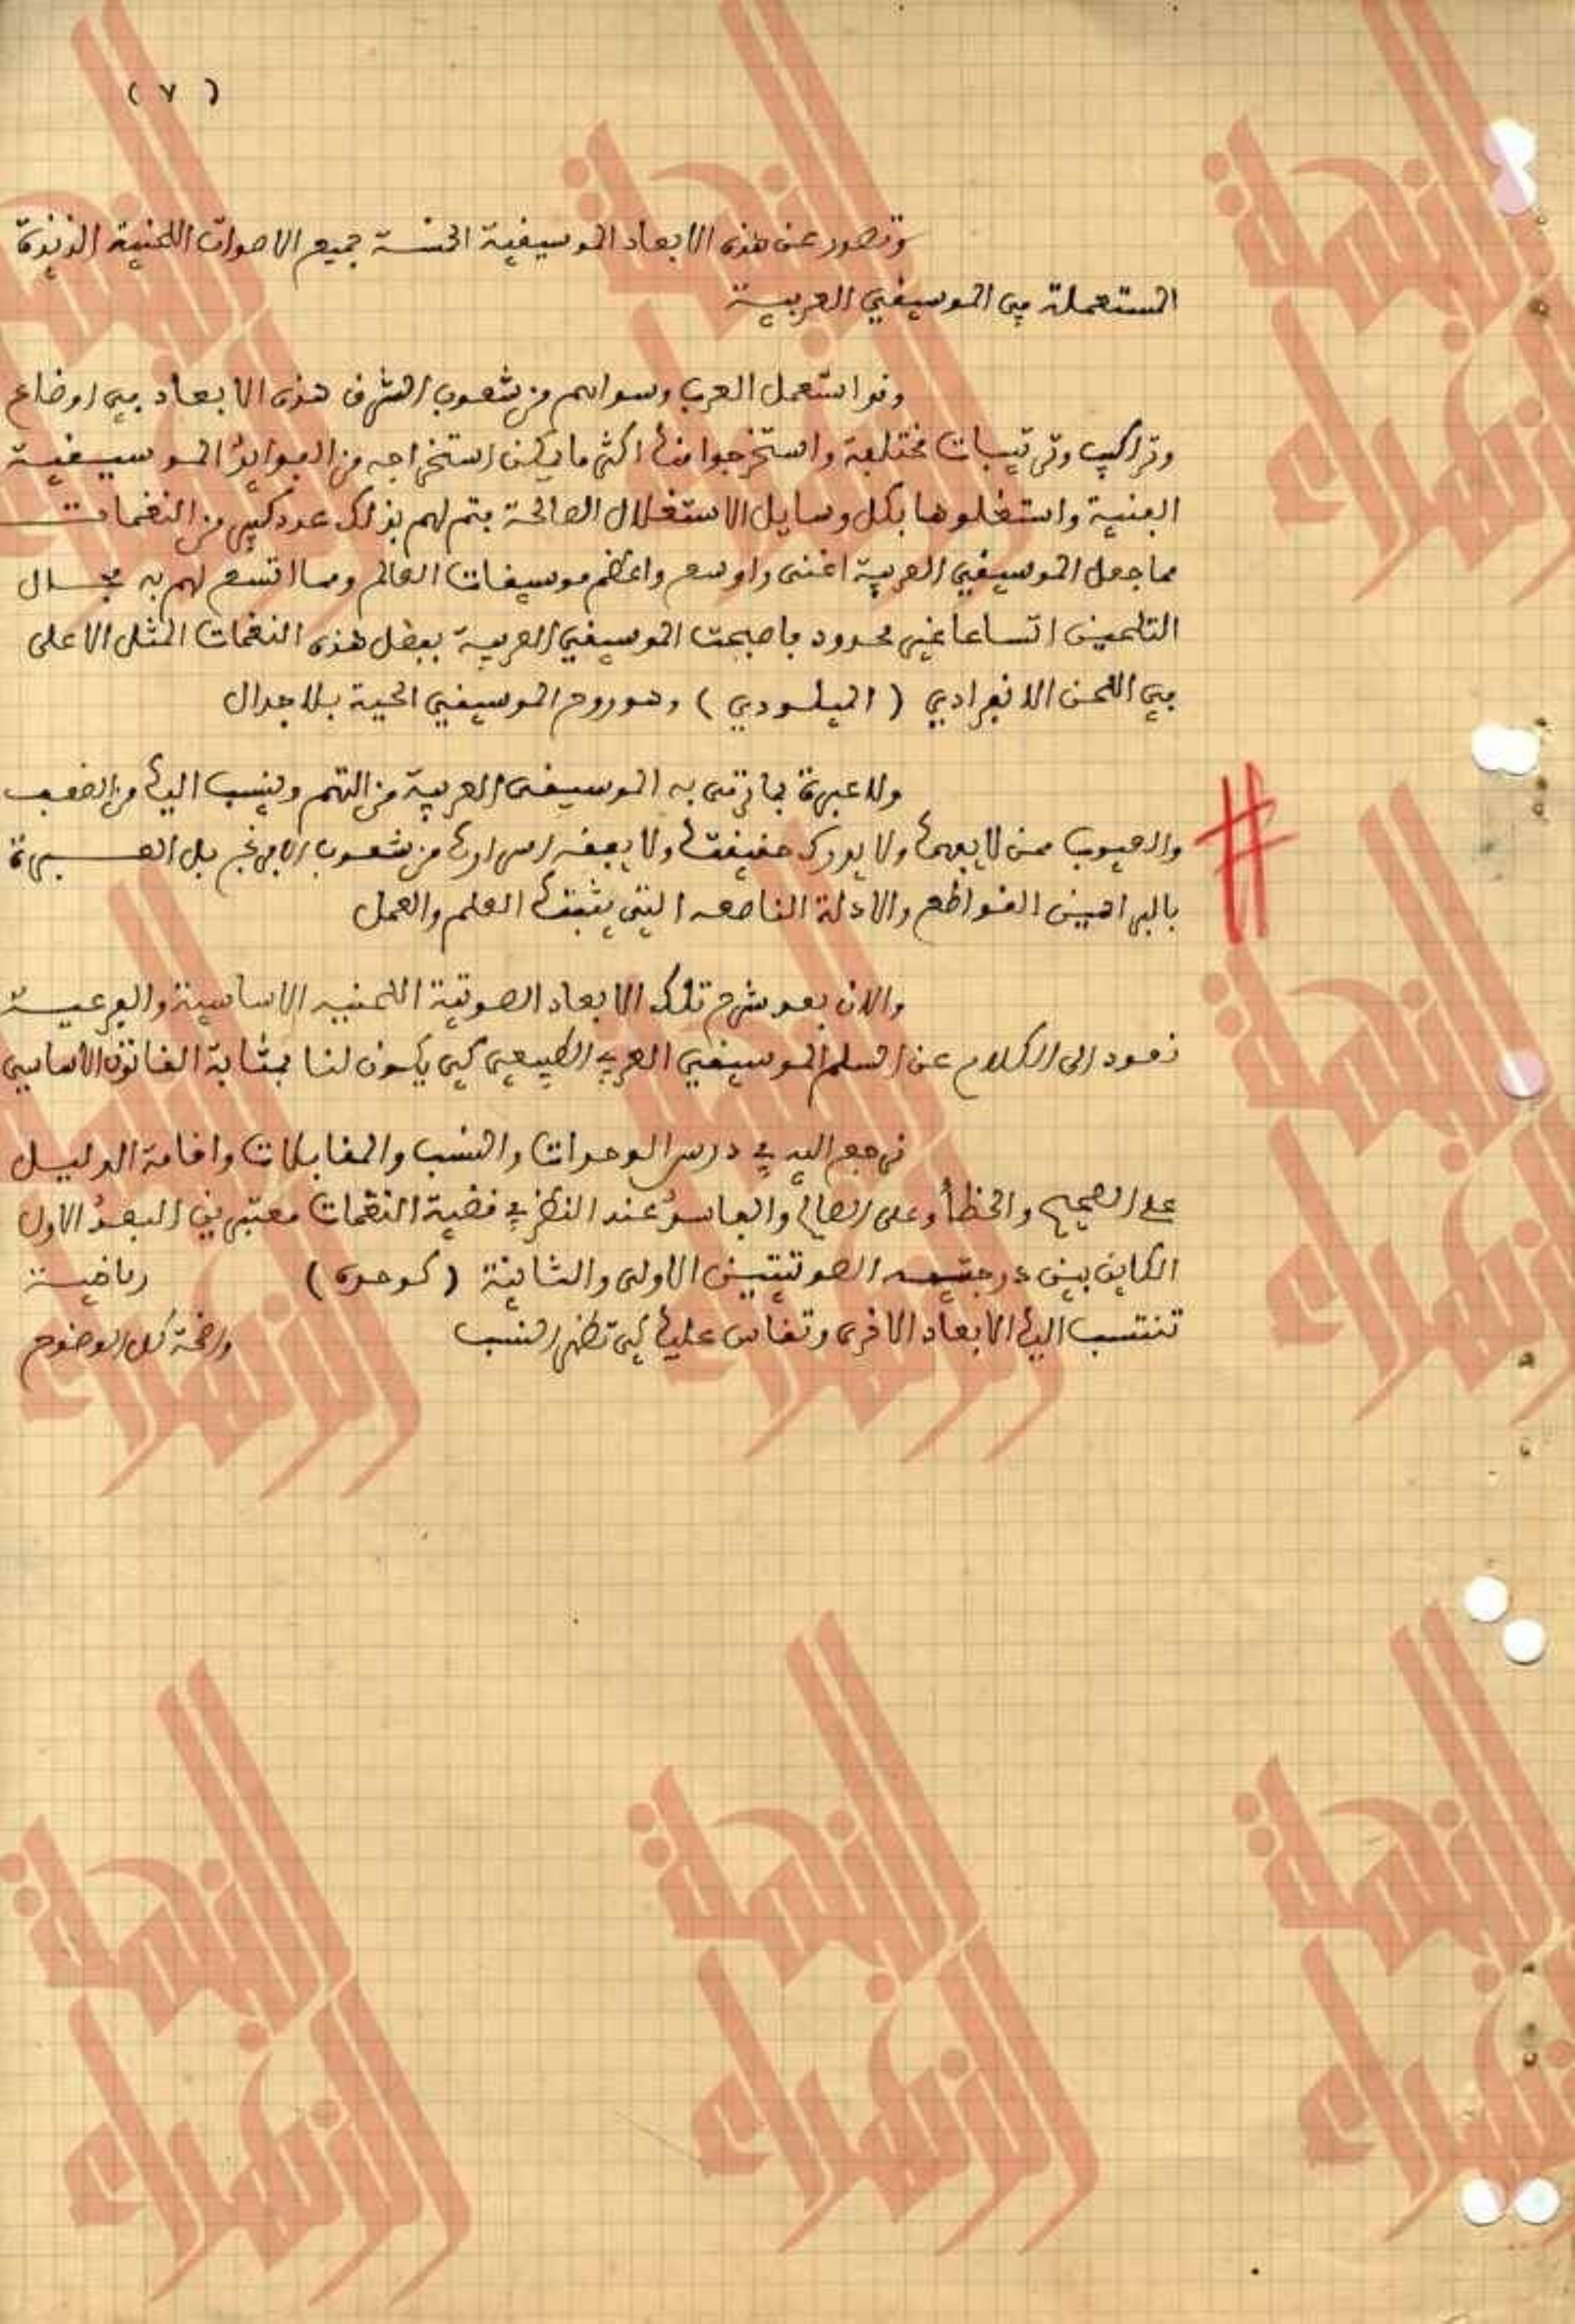 ( ٧ )
وتصدر عن هذه الابعاد الموسيقية الخمسة جميع الاصوات اللحنية اللذيذة
المستعملة في الموسيقى العربية
وقد استعمل العرب وسواهم من شعوب الشرق هذه الابعاد في اوضاع
وتراكيب وترتيبات مختلفة واستخرجوا منها اكثر ما يمكن استخراجه من الفوايد الموسيقية
الفنية واستغلوها بكل وسايل الاستغلال الصالحة فتم لهم بذلك عدد كبير من النغمات
مما جعل الموسيقى العربية اغنى واوسع واعظم موسيقات العالم ومما اتسع لهم به مجال
التلحين اتساعا غير محدود فاصبحت الموسيقى العربية بفضل هذه النغمات المثل الاعلى
في اللحن الانفرادي ( الميلودي ) وهو روح الموسيقى الحية بلا جدال
ولا عبرة بما ترمى به الموسيقى العربية من التهم وينسب اليها من الضعف
والعيوب ممن لا يفهمها ولا يدرك حقيقتها ولا يفقه اسرارها من شعوب الافرنج بل العبرة
بالبراهين القواطع والادلة الناصعه التي يثبتها العلم والعمل
والان بعد شرح تلك الابعاد الصوتية اللحنيه الاساسية والفرعية
نعود الى الكلام عن السلم الموسيقي العربي الطبيعي كي يكون لنا بمثابة القانون الأساسي
نرجع اليه في درس الوحدات والنسب والمقابلات واقامة الدليل
على الصحيح والخطأ وعلى الصالح والفاسد عند النظر في قضية النغمات معتبرين البعد الاول
الكاين بين درجتيه الصوتيتين الاولى والثانية ( كوحدة ) رياضية
تنتسب اليها الابعاد الاخرى وتقاس عليها كي تظهر النسب واضحة كل الوضوح
النهضة
الزهراء